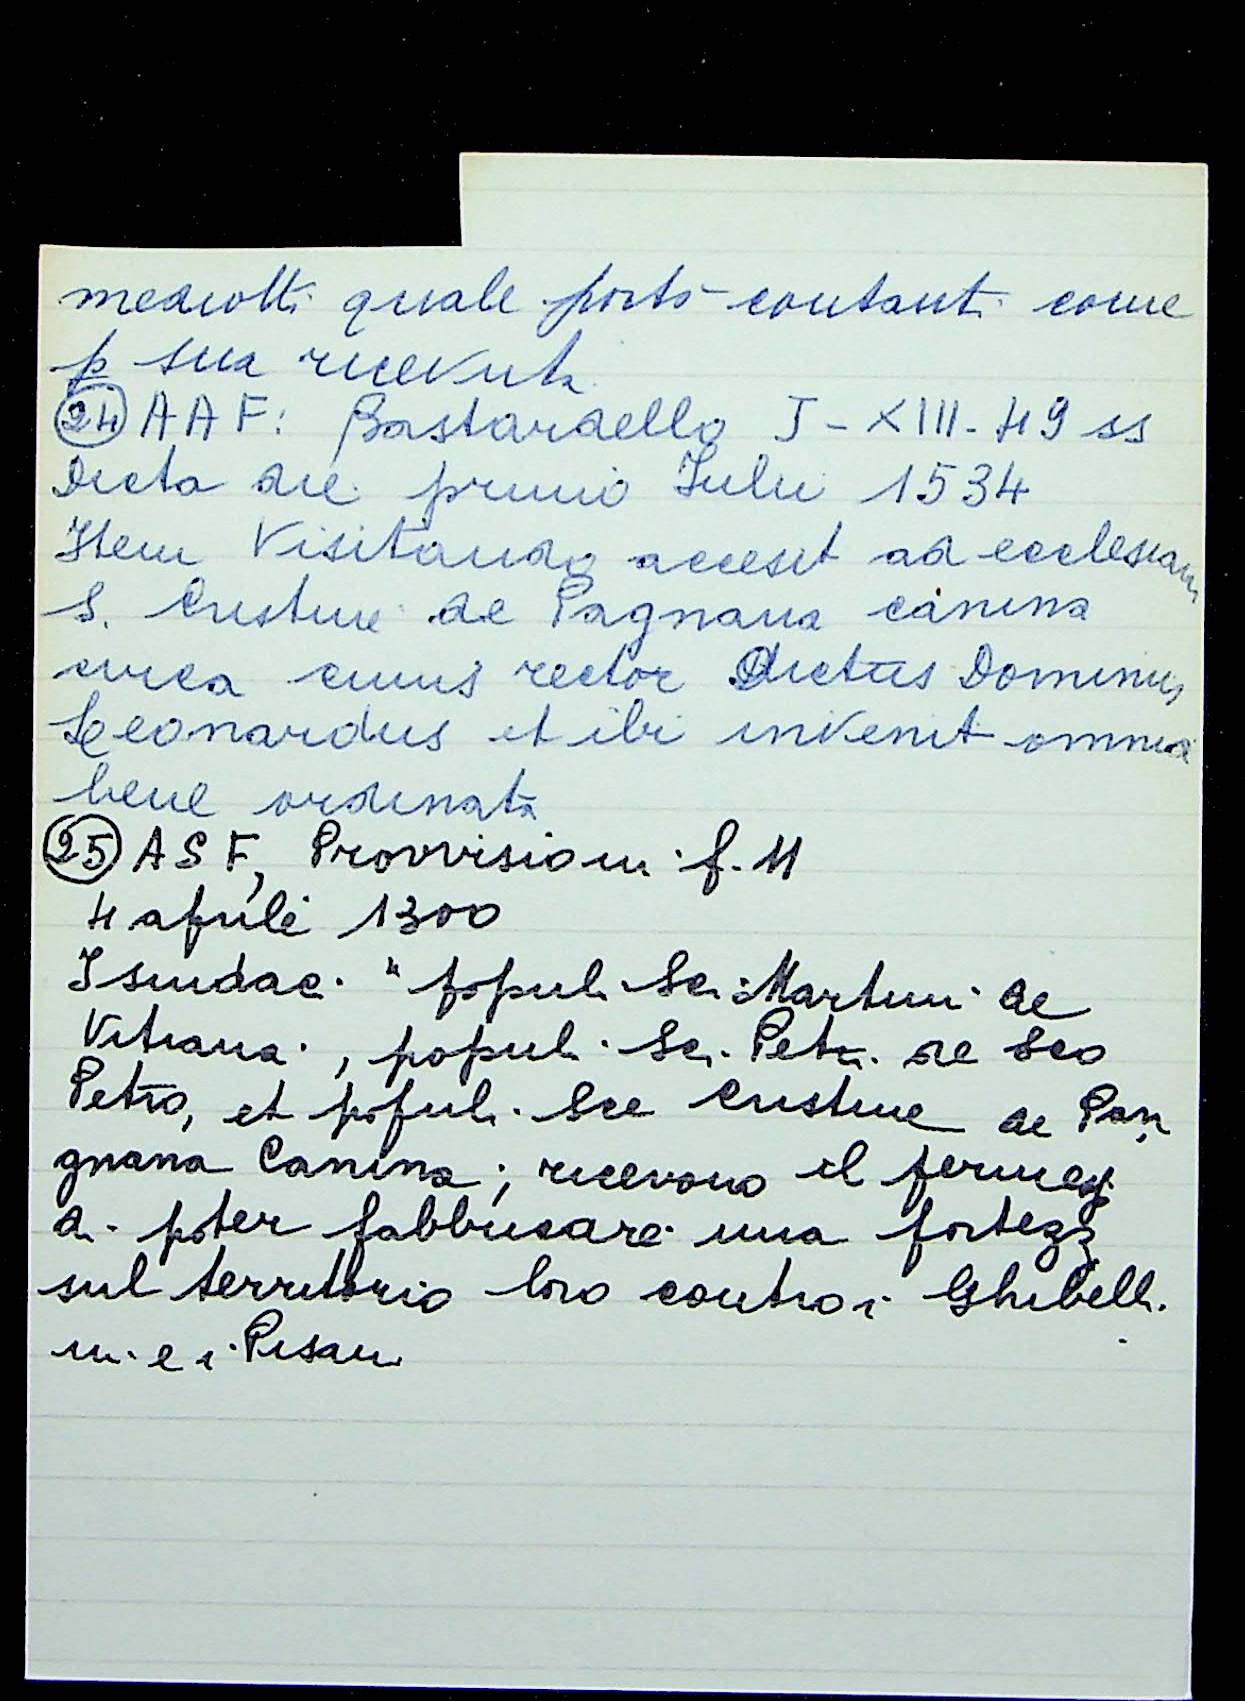 mediotti quale portò contanti come
p sua ricevuta
(24) AAF: Bastardello I-XIII-49 ss
Dicta die primo Iulii 1534
Item Visitando accesit ad ecclesiam
S. Cristine de Pagnana canina
cuius rector Dictus Dominus
Leonardus et ibi invenit omnia
bene ordinata
(25) ASF, Provvisioni f. 11
4 aprile 1300
I sindaci "populi Sci Martini de
Vitiana, populi Sci Petri de Sco
Petro, et populi Sce Cristine de Pan
gnana Canina; ricevono il
di poter fabbricare una fortezza
sul territorio loro contro i Ghibelli
ni e i Pisani